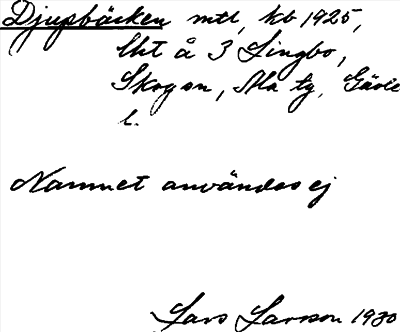 Djupbäcken mtl, kb 1925,
lht å 3 Lingbo,
Skogen, Ma ty, Gävle
l.
Namnet användes ej
Lars Larsson 1930